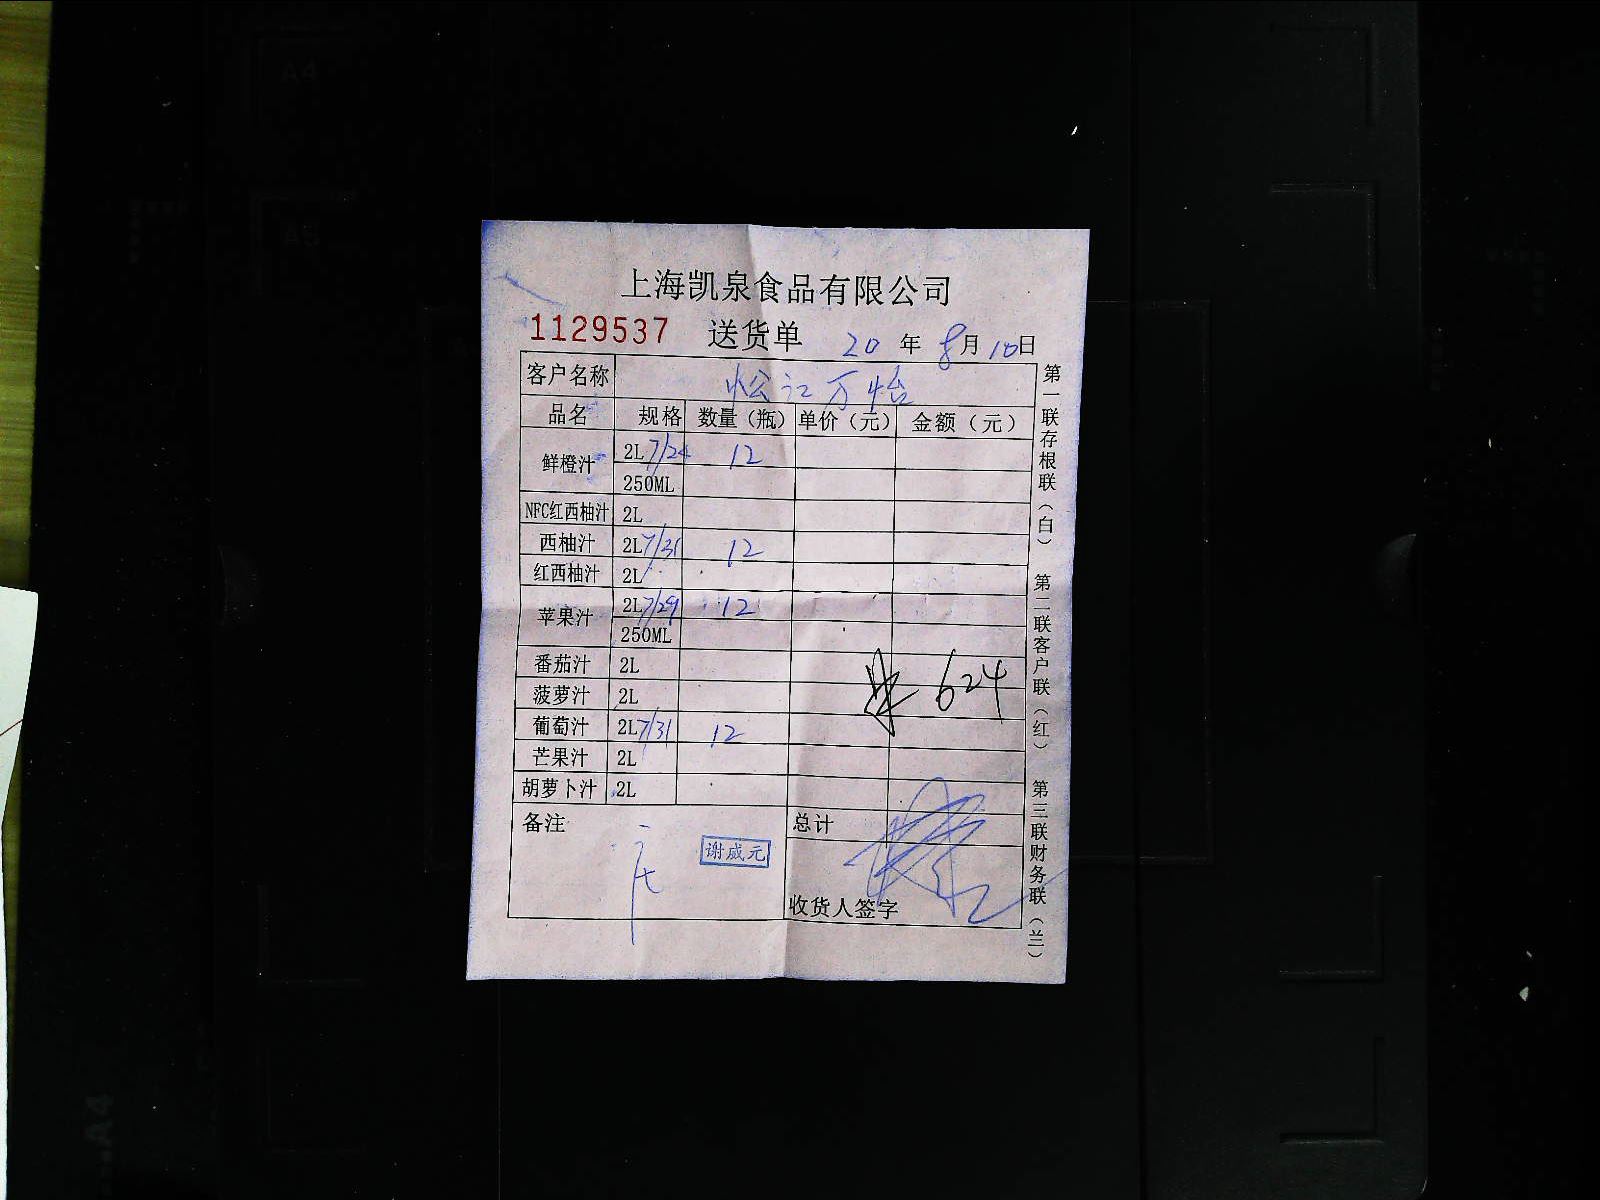 上海凯泉食品有限公司
1129537 送货单 20 年 8月10日
客户名称 松江万怡
品名 规格 数量（瓶） 单价（元） 金额（元）
鲜橙汁 2L 7/24 12
250ML
NFC红西柚汁 2L
西柚汁 2L 7/31 12
红西柚汁 2L
苹果汁 2L 7/29 12
250ML
番茄汁 2L
菠萝汁 2L
624
葡萄汁 2L 7/31 12
芒果汁 2L
胡萝卜汁 2L
备注 总计
谢威元
收货人签字
第一联存根联（白）
第二联客户联（红）
第三联财务联（兰）
A4
A5
A4